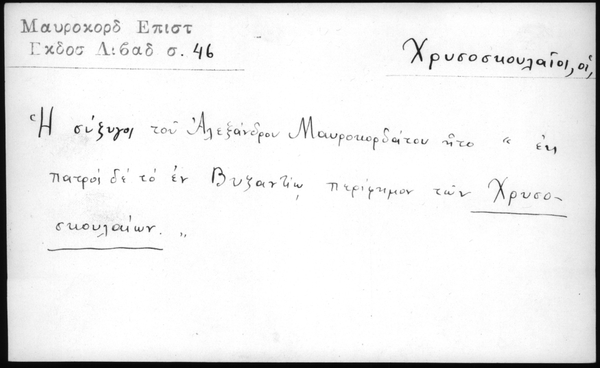 Μαυροκορδ Επιστ
Εκδοσ Λιβαδ σ. 46
Χρυσοσκουλαῖοι, οἱ,
Ἡ σύζυγος τοῦ Ἀλεξάνδρου Μαυροκορδάτου ἦτο "ἐκ
πατρὸς δέ τό ἐν Βυζαντίῳ περίφημον τῶν Χρυσο-
σκουλαίων."